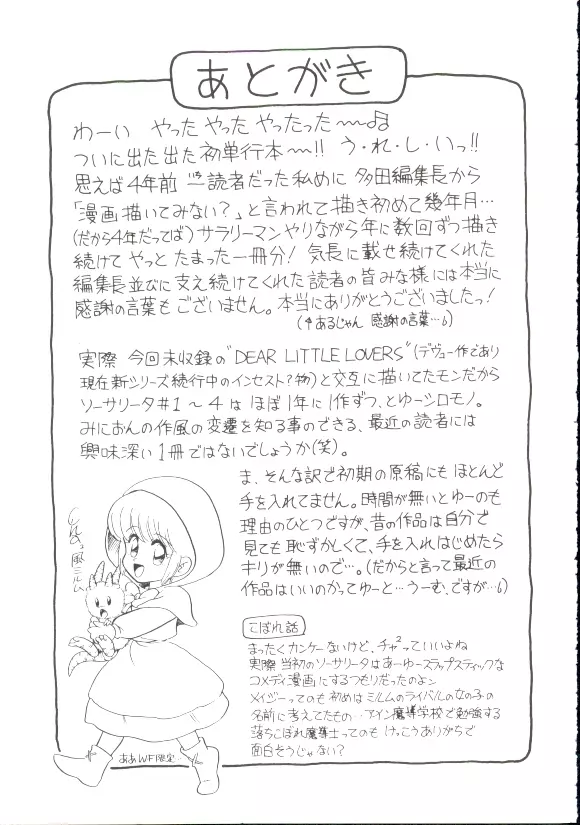 あとがき
わーい やった やった やったった〜〜♫
ついに出た出た初単行本〜〜!! う・れ・し・いっ!!
思えば4年前 一読者だった私めに 多田編集長から
「漫画描いてみない?」と言われて描き初めて幾年月…
(だから4年だってば) サラリーマンやりながら年に数回ずつ描き
続けて やっと たまった一冊分! 気長に載せ続けてくれた
編集長並びに支え続けてくれた読者の皆みな様には本当に
感謝の言葉もございません。本当にありがとうございましたっ!
(↑あるじゃん 感謝の言葉…6)
実際 今回未収録の“DEAR LITTLE LOVERS”(デヴュー作であり
現在新シリーズ続行中のインセスト?物)と交互に描いてたモンだから
ソーサリータ#1〜4は ほぼ1年に1作ずつ、とゆーシロモノ。
みにおんの作風の変遷を知る事のできる、最近の読者には
興味深い1冊ではないでしょうか(笑)。
ま、そんな訳で初期の原稿にも ほとんど
手を入れてません。時間が無いとゆーのも
理由のひとつですが、昔の作品は自分で
見ても恥ずかしくて、手を入れはじめたら
キリが無いので…。(だからと言って最近の
作品はいいのかってゆーと…うーむ、ですが…6)
風ミルム
こぼれ話
まったくカンケーないけど、チャ²っていいよね
実際 当初のソーサリータはあーゆースラップスティックな
コメディ漫画にするつもりだったのよン
メイジーってのも初めはミルムのライバルの女の子の
名前に考えてたもの…アイン魔導学校で勉強する
落ちこぼれ魔導士ってのも けっこうありがちで
面白そうじゃない?
ああWF限定…